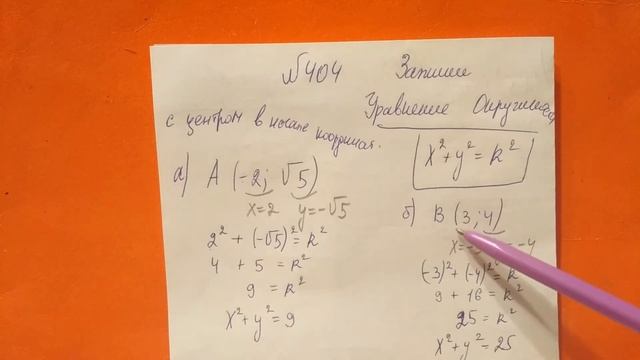 №404 Запиши
Уравнение Окружности
с центром в начале координат.
x² + y² = R²
а) A (-2; √5)
x=2 y=-√5
2² + (-√5)² = R²
4 + 5 = R²
9 = R²
x² + y² = 9
б) B (3; 4)
x=-3 = -4
(-3)² + (-4)² = R²
9 + 16 = R²
25 = R²
x² + y² = 25